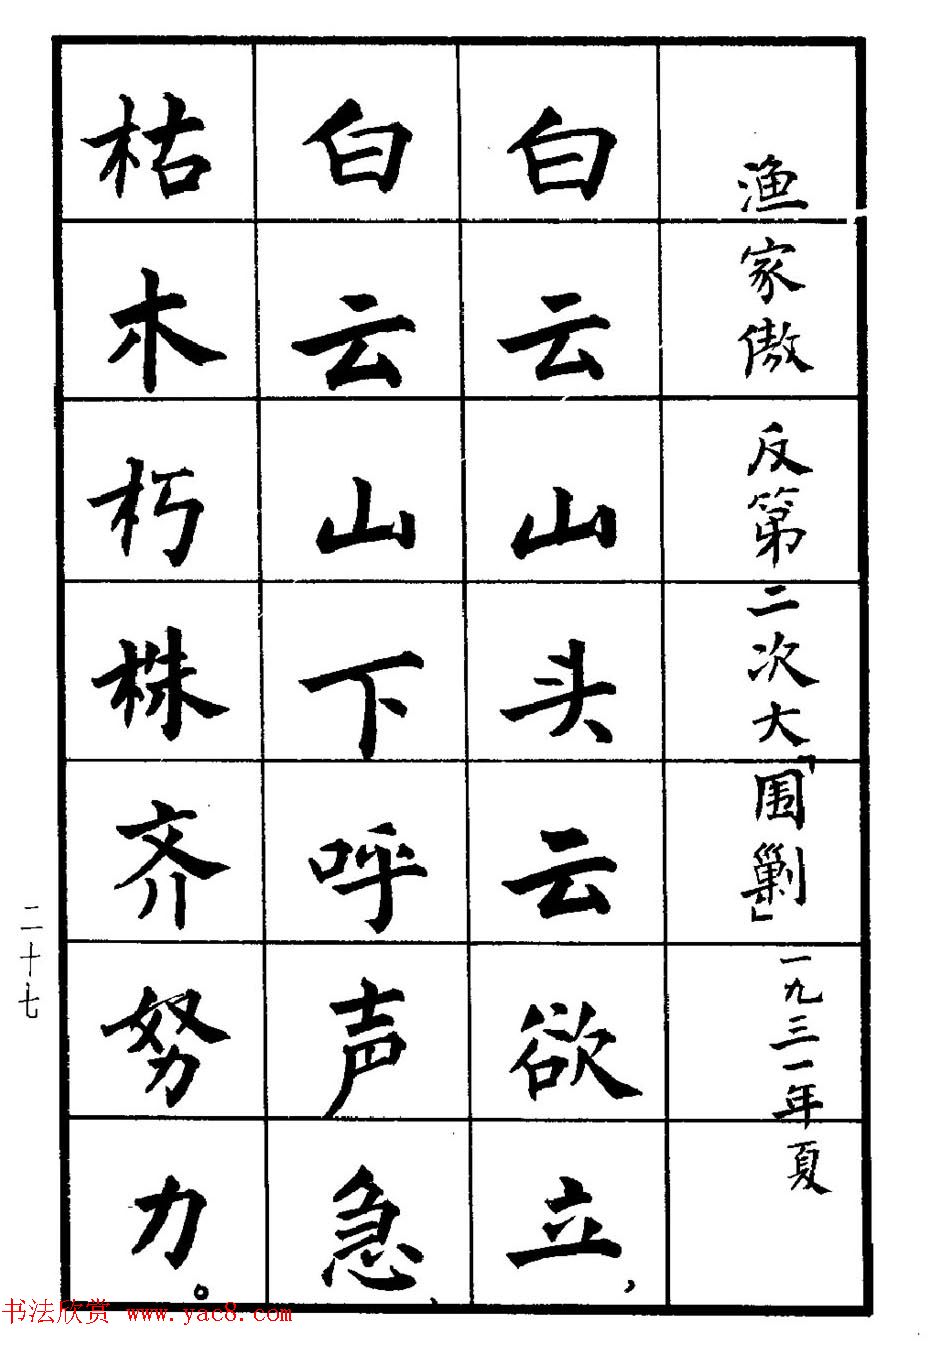 渔家傲 反第二次大「围剿」 一九三一年夏
白云山头云欲立，
白云山下呼声急，
枯木朽株齐努力。
二十七
书法欣赏 www.yac8.com